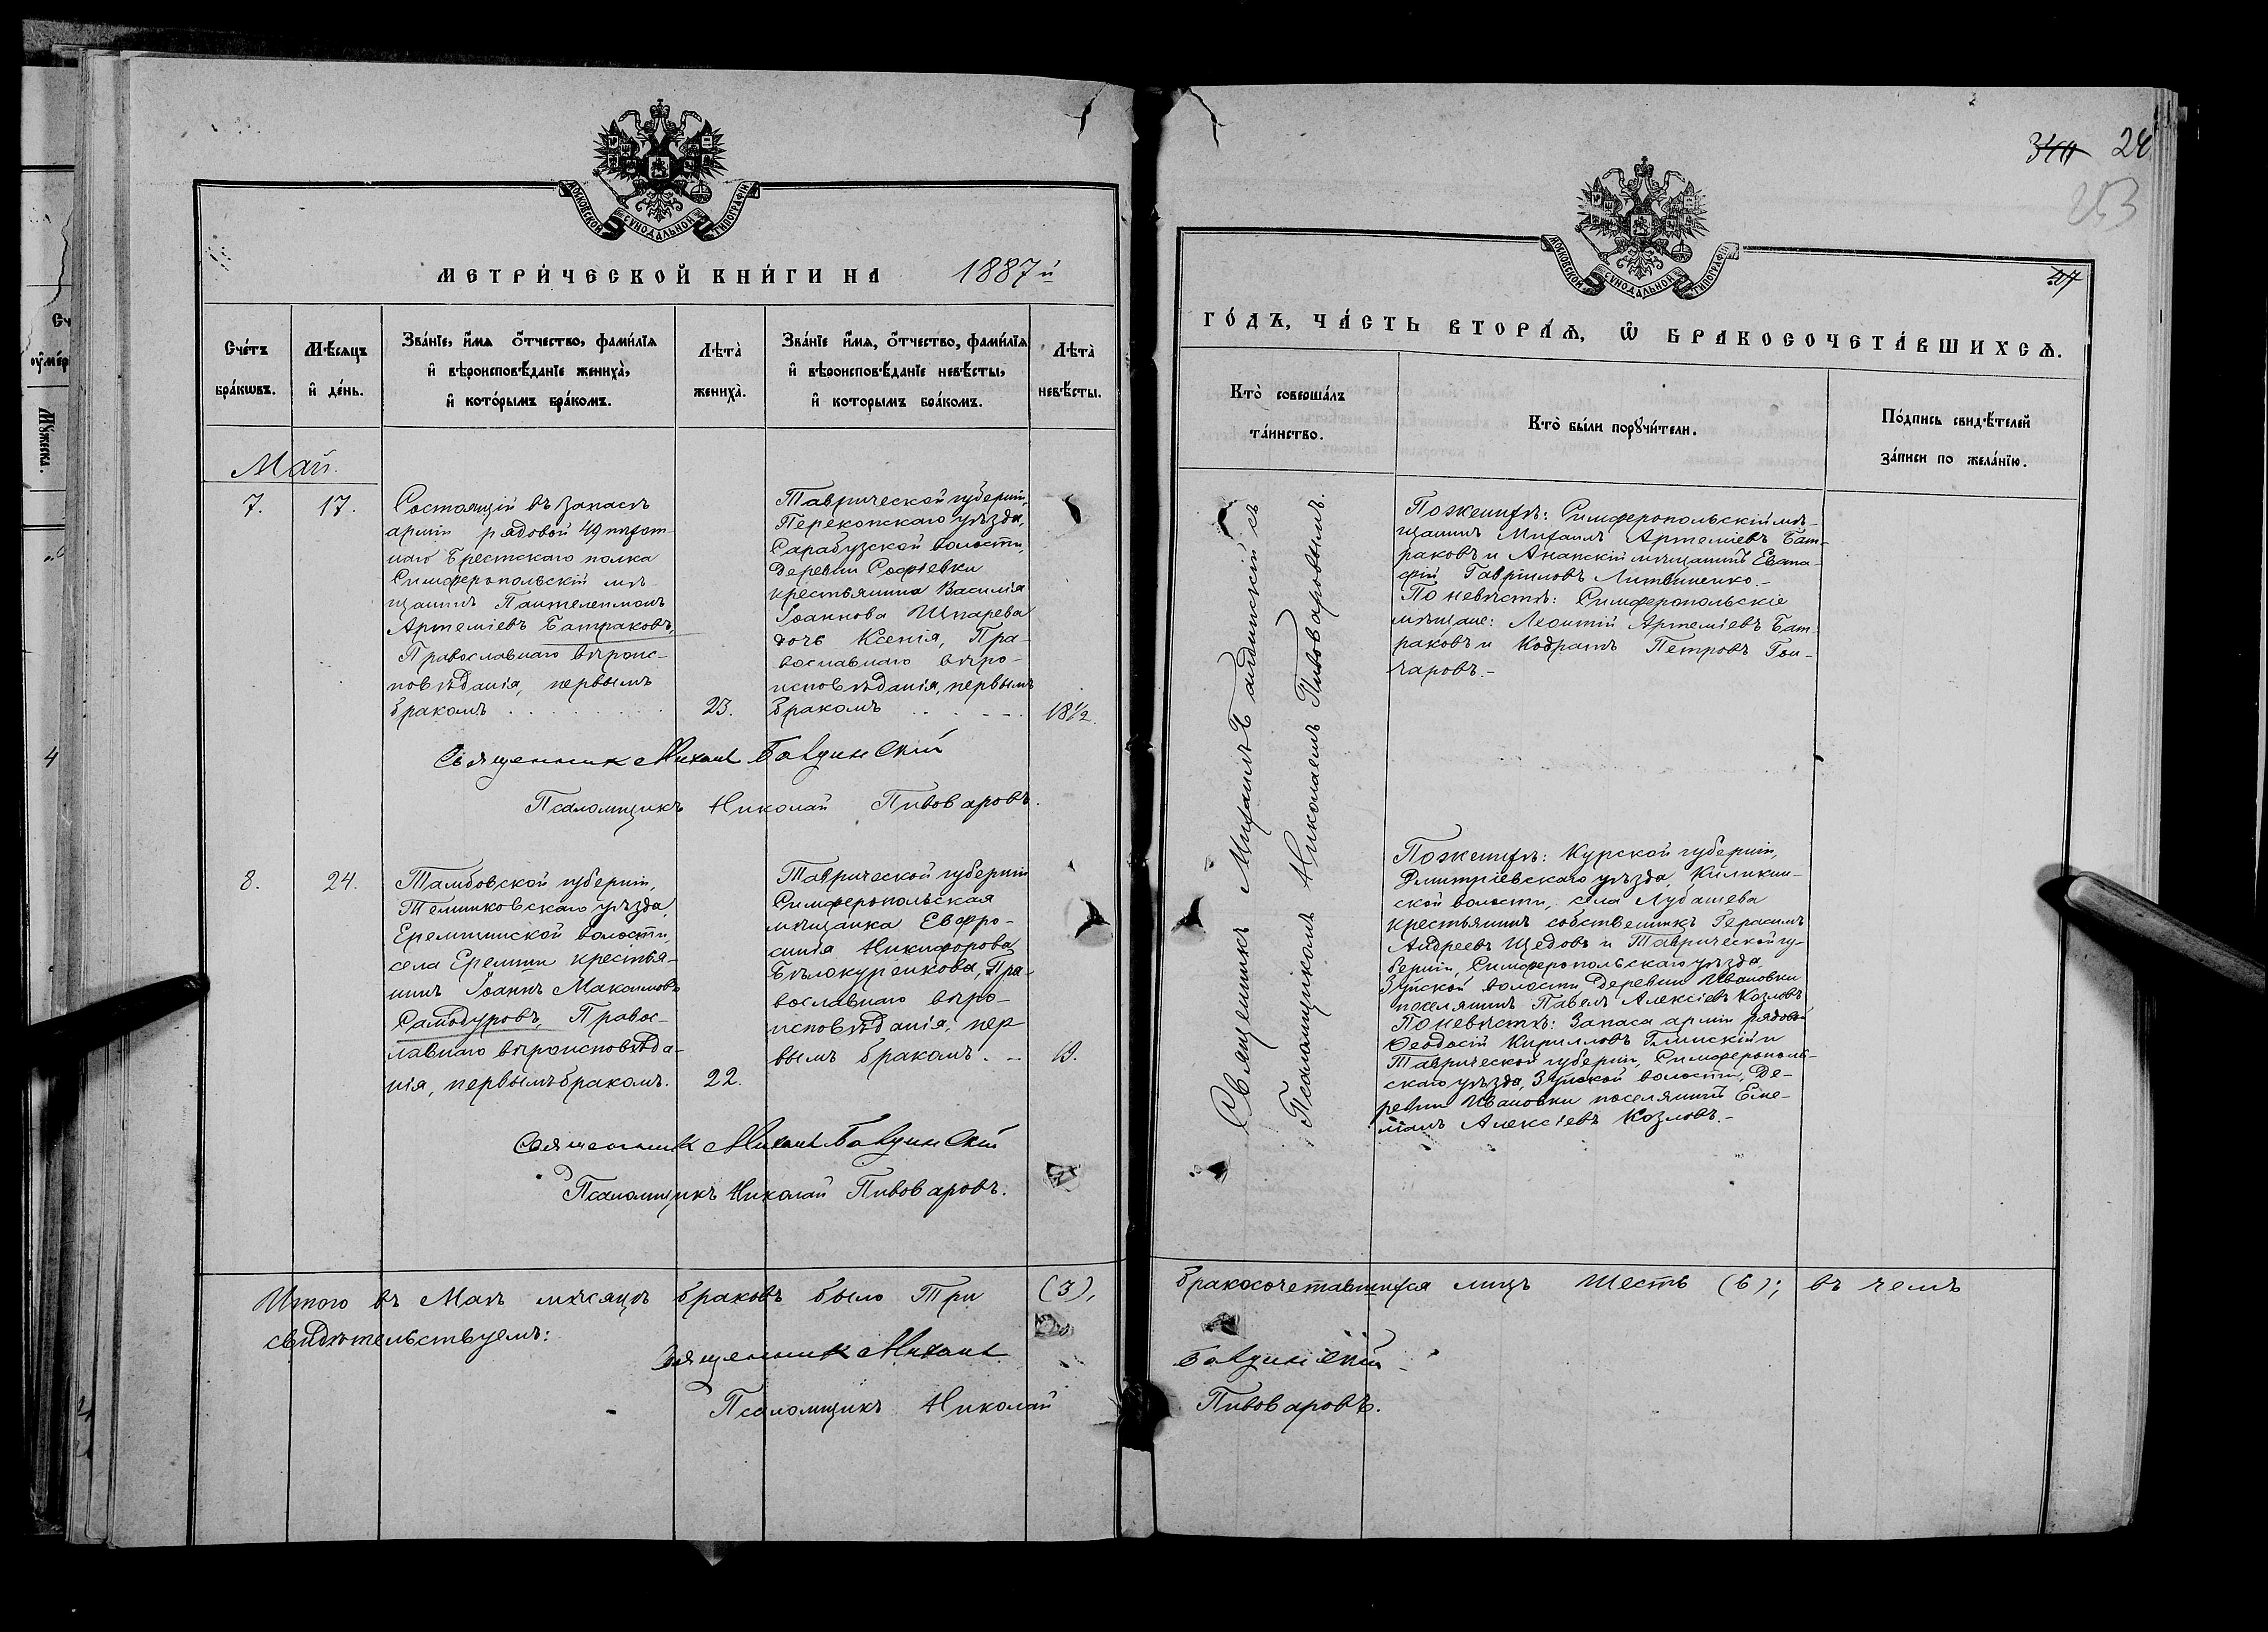 МОСКОВСКОЙ СУНОДАЛЬНОЙ ТИПОГРАФІИ
МЕТРИ́ЧЕСКОЙ КНИ́ГИ НА 1887й
Сче́тъ бра́кωвъ.
Мѣ́сяцъ и҆ де́нь.
Зва́нїе, и҆́мя ѻ҆́тчество, фами́лїя
и҆ вѣроисповѣ́данїе жениха̀,
и҆ кото́рымъ бра́комъ.
Лѣта̀ жениха̀.
Зва́нїе и҆́мя, ѻ҆́тчество, фами́лїя
и҆ вѣроисповѣ́данїе невѣ́сты,
и҆ которымъ бра́комъ.
Лѣта̀ невѣ́сты.
Май.
7.
17.
Состоящій въ запасѣ
арміи рядовой 49 пѣхот-
наго Брестскаго полка
Симферопольскій мѣ-
щанинъ Пантелеимонъ
Артеміевъ Батраковъ,
Православнаго вѣроис-
повѣданія, первымъ
бракомъ
23.
Таврической губерніи,
Перекопскаго уѣзда,
Сарабузской волости,
деревни Софіевки
крестьянина Василія
Іоаннова Шпарева
дочь Ксенія, Пра-
вославнаго вѣро-
исповѣданія, первымъ
бракомъ
18½.
Священникъ Михаилъ Баландинскій
Псаломщикъ Николай Пивоваровъ.
8.
24.
Тамбовской губерніи,
Темниковскаго уѣзда,
Еремшинской волости,
села Еремши крестья-
нинъ Іоаннъ Максимовъ
Самодуровъ, Правос-
лавнаго вѣроисповѣда-
нія, первымъ бракомъ.
22.
Таврической губерніи
Симферопольская
мѣщанка Евфро-
синія Никифорова
Бѣлокуренкова, Пра-
вославнаго вѣро-
исповѣданія, пер
вымъ бракомъ.
19.
Священникъ Михаилъ
Псаломщикъ Николай Пивоваровъ.
Итого въ Маѣ мѣсяцѣ браковъ было Три (3),
свидѣтельствуемъ:
Священникъ Михаилъ
Псаломщикъ Николай
24
МОСКОВСКОЙ СУНОДАЛЬНОЙ ТИПОГРАФІИ
ГО́ДЪ, ЧА́СТЬ ВТОРА́Я, Ѽ БРАКОСОЧЕТА́ВШИХСЯ.
Кто̀ соверша́лъ та́инство.
Кто̀ бы́ли порꙋчи́тели.
По́дпись свидѣ́телей
за́писи по жела́нїю.
Священникъ Михаилъ съ
Псаломщикомъ Николаемъ Пивоваровымъ.
По женихѣ: Симферопольскій мѣ-
щанинъ Михаилъ Артеміевъ Бат-
раковъ и Анапскій мѣщанинъ Евста-
фій Гавріиловъ Литвиненко.-
По невѣстѣ: Симферопольскіе
мѣщане: Леонтій Артеміевъ Бат-
раковъ и Кодратъ Петровъ Гон-
чаровъ.-
По женихѣ: Курской губерніи,
Дмитріевскаго уѣзда,
ской волости, села Лубашева
крестьянинъ собственникъ Герасимъ
Андреевъ Щедовъ и Таврической гу-
берніи, Симферопольскаго уѣзда,
Зуйской волости деревни Ивановки
поселянинъ Павелъ Алексіевъ Козловъ
По невѣстѣ: Запаса арміи рядовой
Ѳеодосій Кирилловъ Глинскій и
Таврической губерніи, Симферополь-
скаго уѣзда, Зуйской волости, де-
ревни Ивановки поселянинъ
Алексіевъ Козловъ.-
бракосочетавшихся лицъ Шесть (6); въ чемъ
Пивоваровъ.